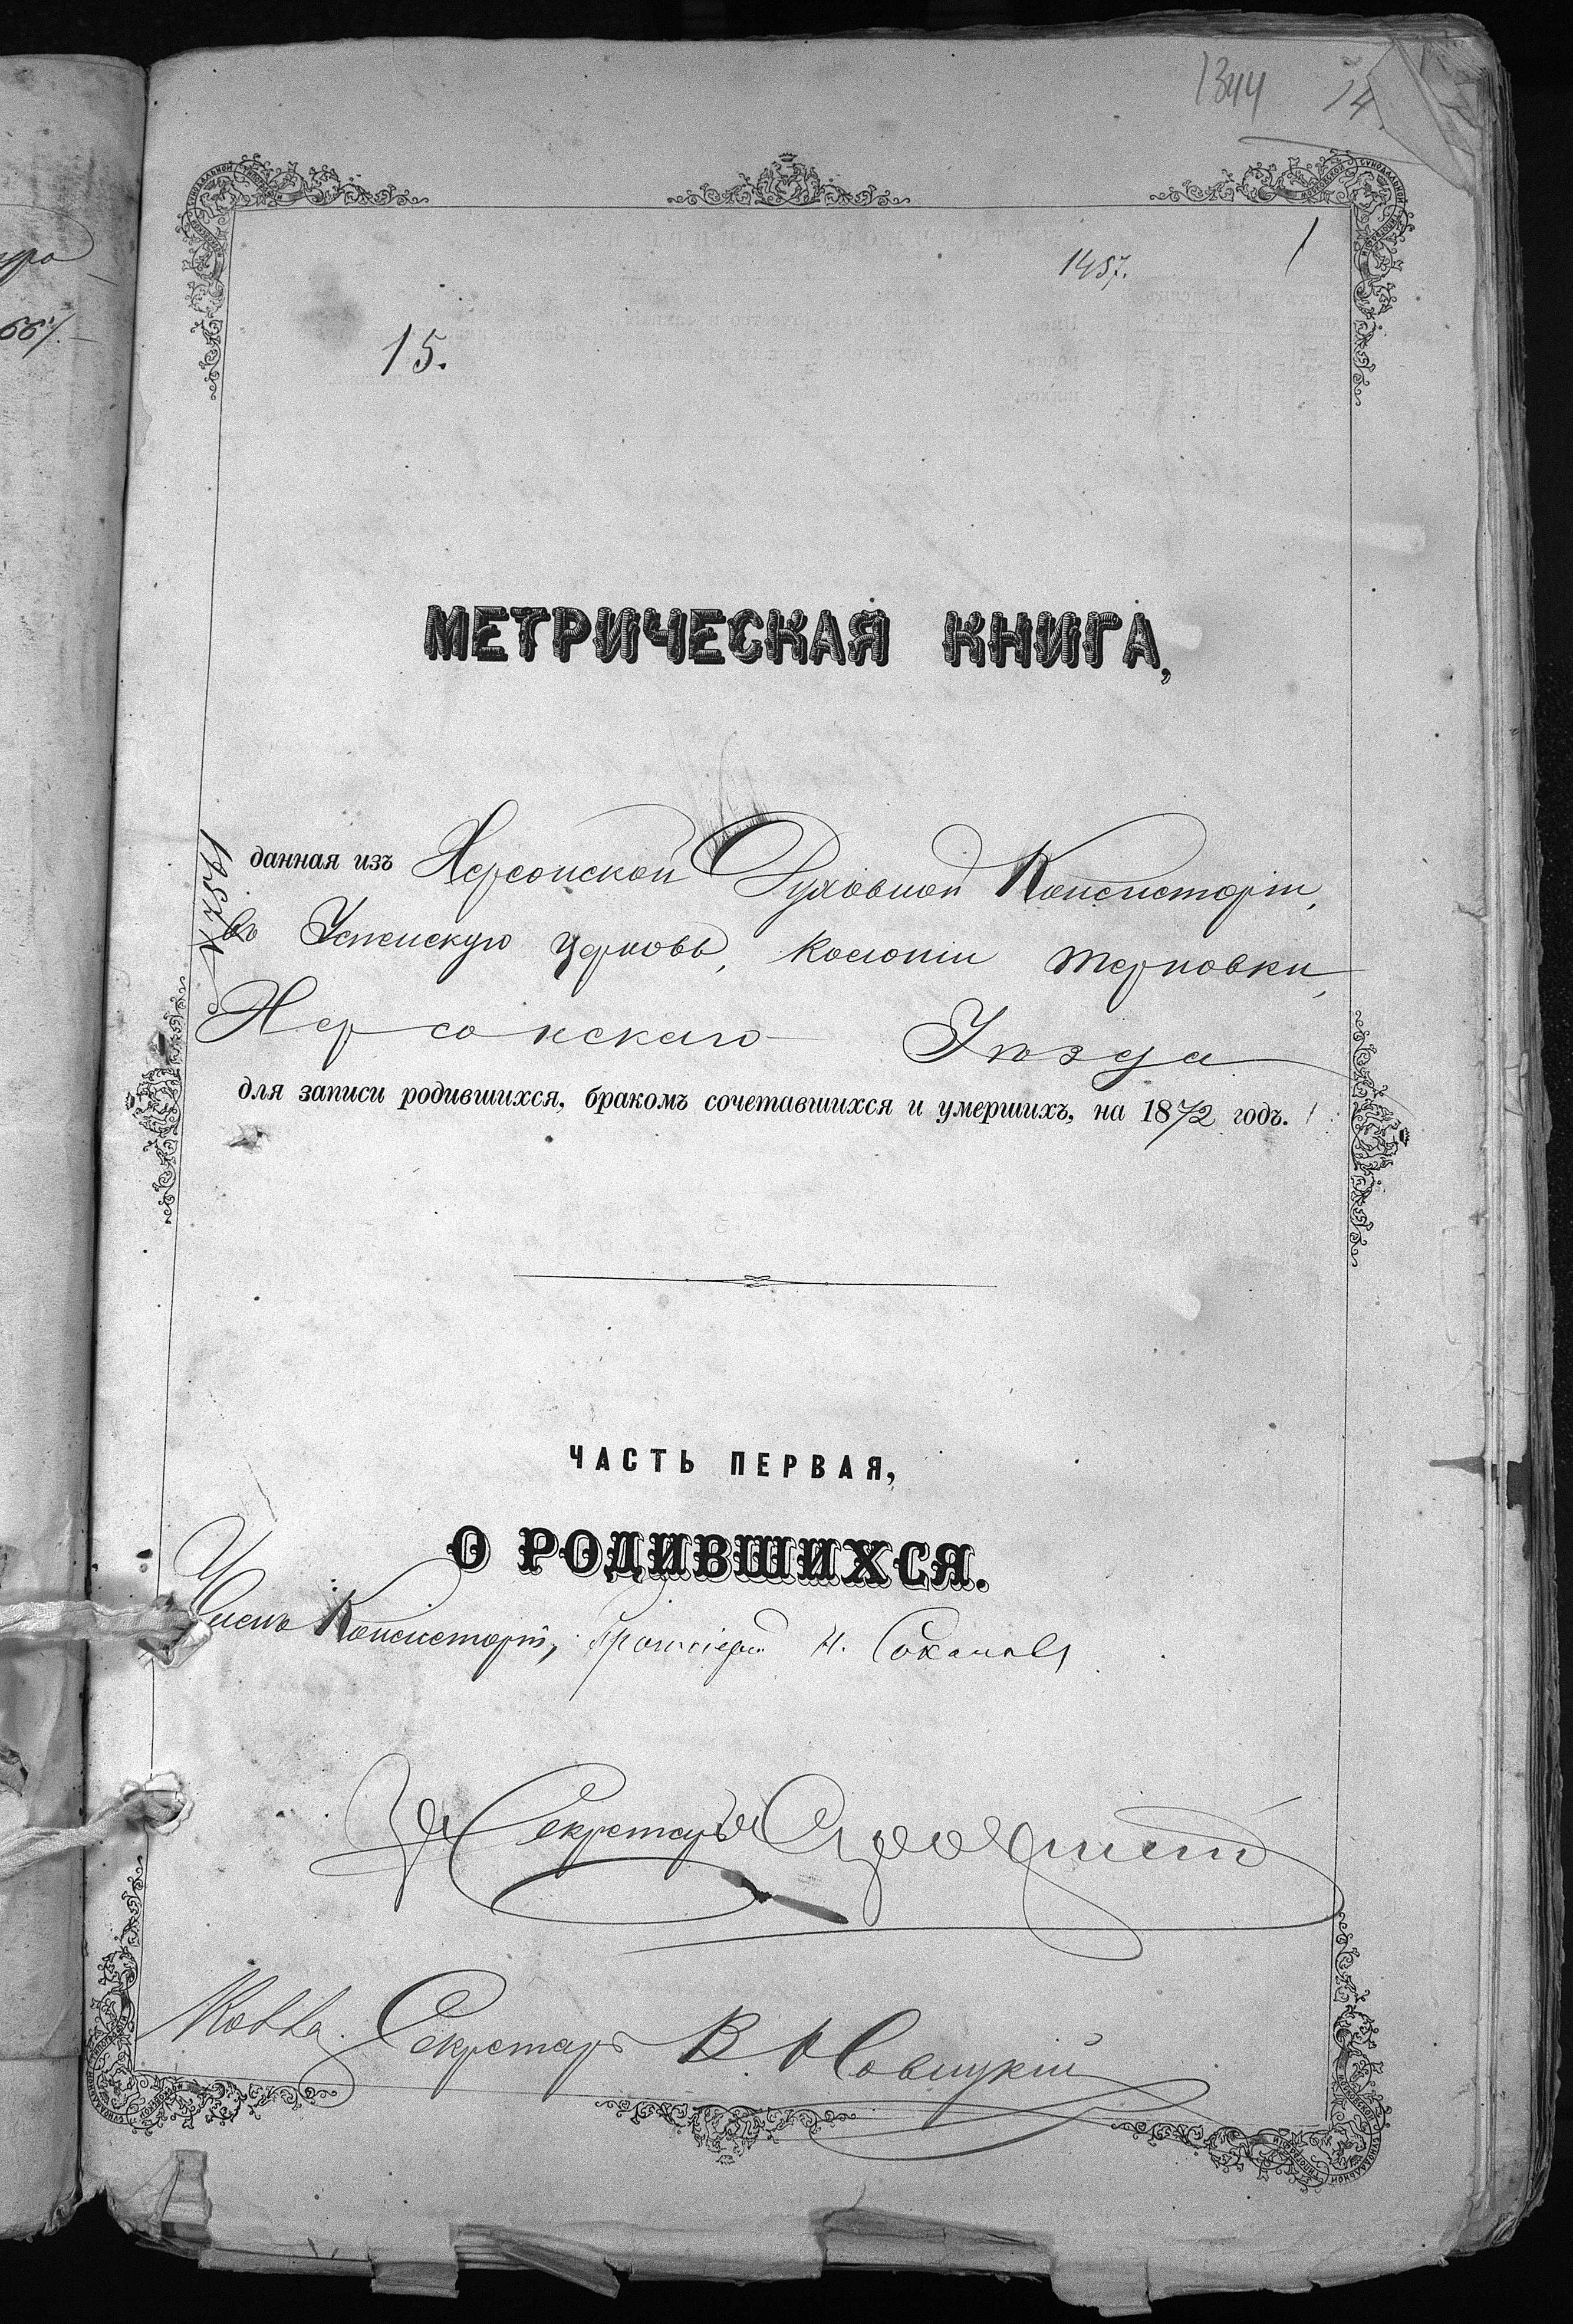 1344 14
1457. 1
15.
МЕТРИЧЕСКАЯ КНИГА,
данная изъ Херсонской Духовной Консисторіи,
въ Успенскую церковь, колоніи Терновки,
Херсонскаго Уѣзда
для записи родившихся, бракомъ сочетавшихся и умершихъ, на 1872 годъ.
ЧАСТЬ ПЕРВАЯ,
О РОДИВШИХСЯ.
Членъ Консисторіи, Протоіерей Н. Соколовъ
За Секретаря
Секретарь В Новицкій